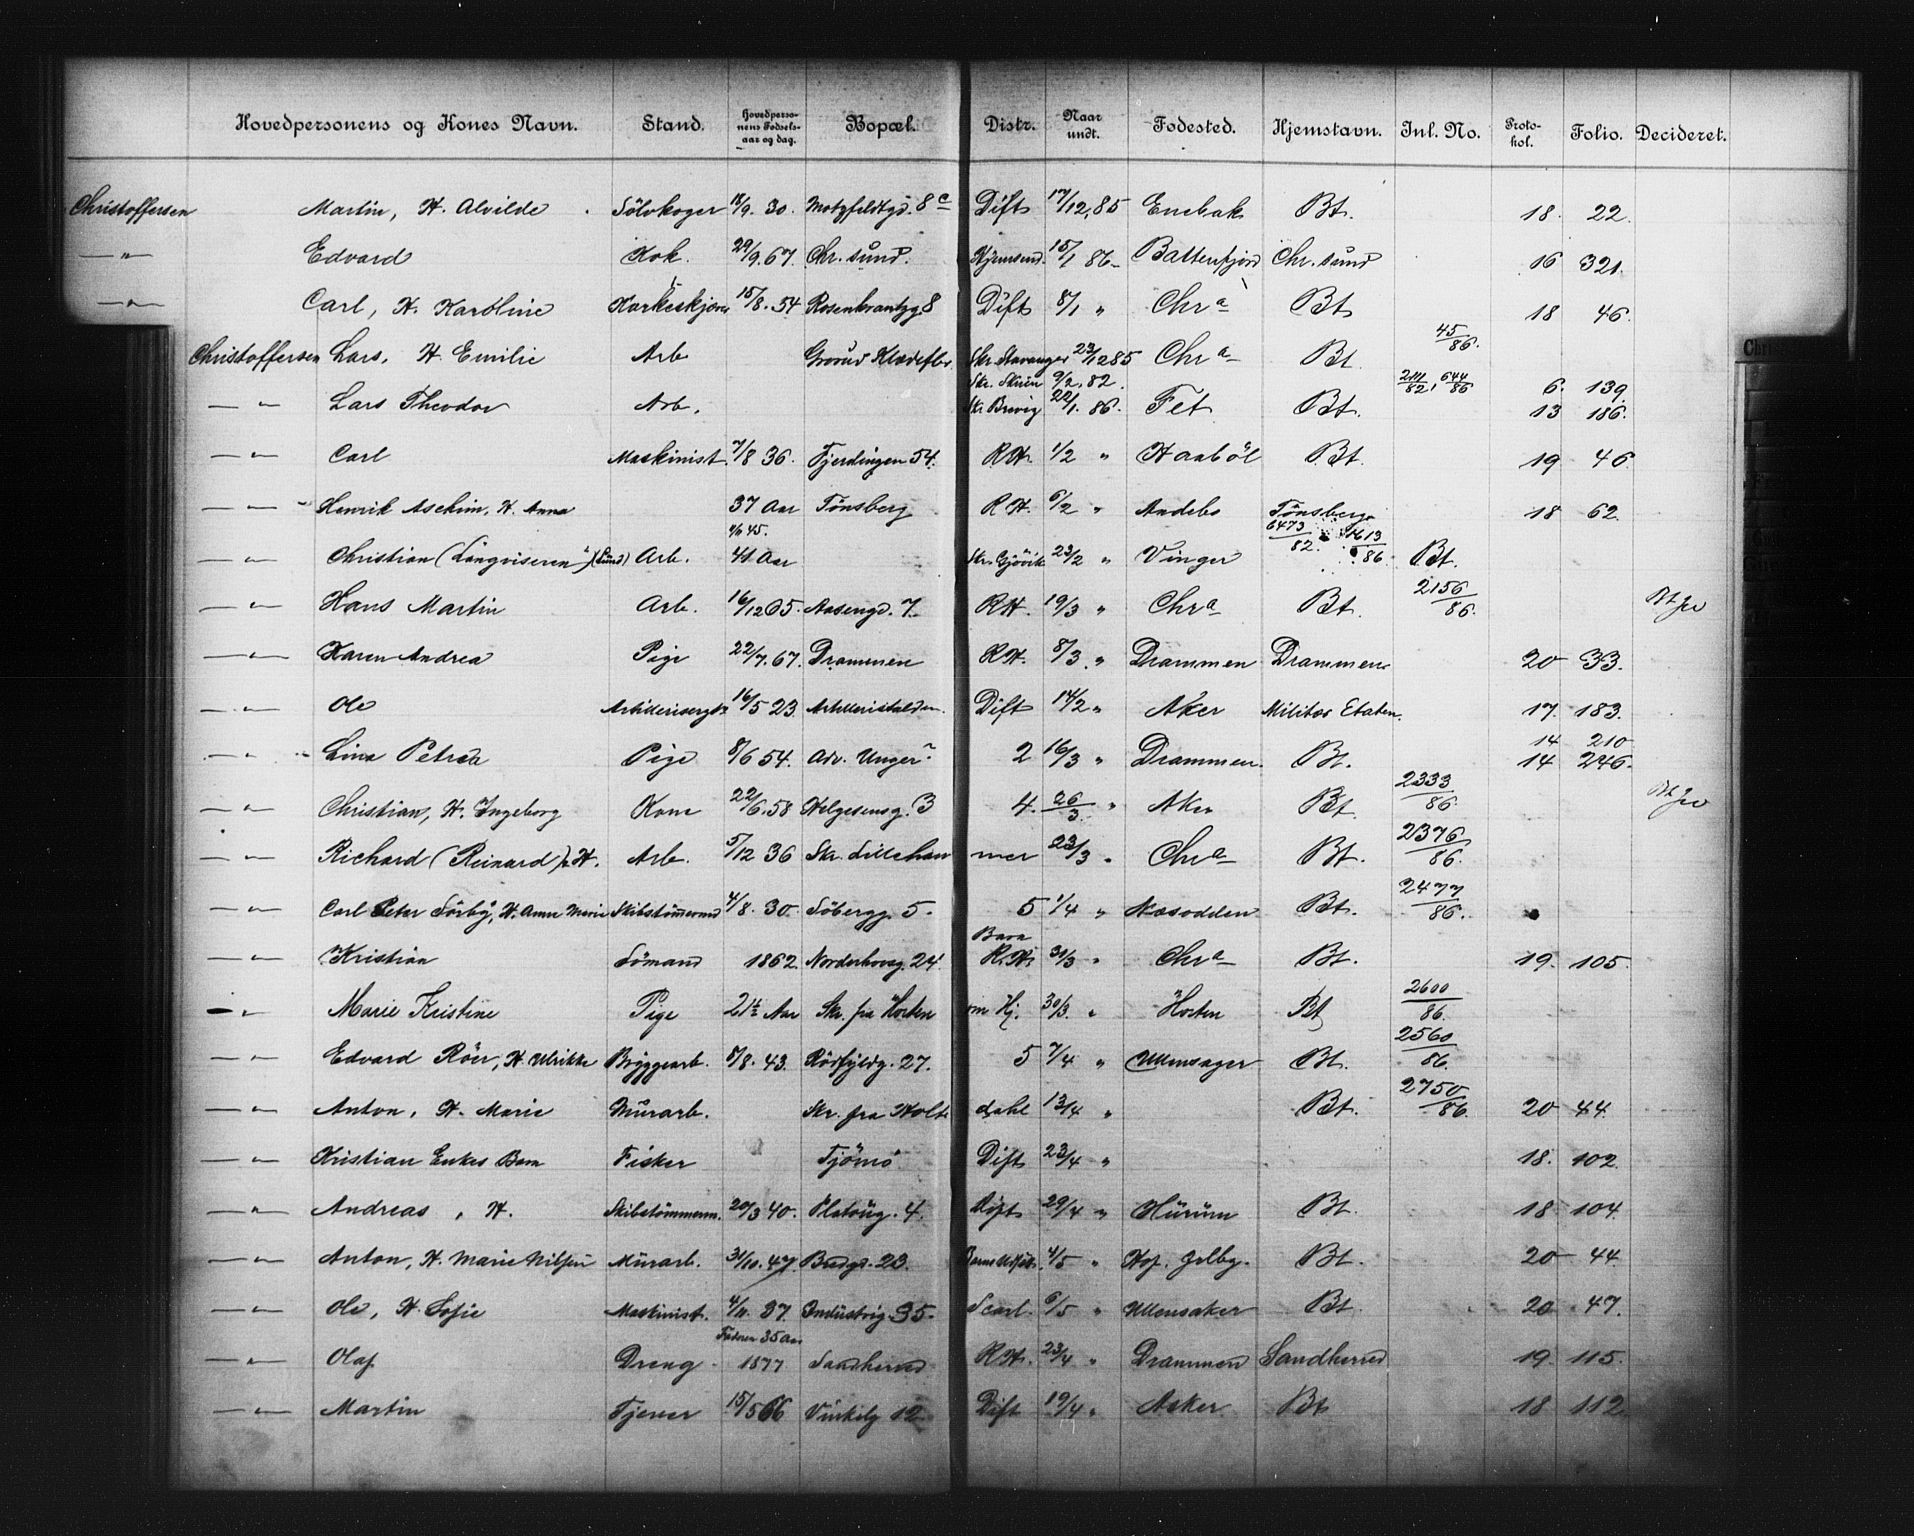 Hovedpersonens og Kones Navn. Stand. Hovedperso-nens Fødsels-aar og dag. Bopæl. Distr. Naar undt. Fødested. Hjemstavn. Inl. No. Proto-kol. Folio. Decideret.
Christoffersen Martin, H. Alvilde Sölvkoger 18/9. 30. Motzfeldtgd. 8 c Dift 17/12, 85 Enebak Bt. 18. 22.
—"— Edvard Kok. 29/9. 67. Chr. sund. 15/1 86 Battenfjord Chr. sund 16 321.
—"— Carl, H. Karoline Korkeskjærer 15/8. 54 Rosenkrantzg 8 Dift 8/1 " Chr a Bt 18 46.
Christoffersen Lars, H. Emilie Arb Grorud Klædefbr. Skr. Stavanger 23/12 85 Chr a Bt. 45/86.
—"— Lars Theodor Arb. Skr. Skien 9/2. 82. Skr Brevig 22/1. 86. Fet Bt. 211/82, 644/86 6. 139 13 186.
—"— Carl Maskinist. 7/8 36. Fjerdingen 54. R.H. 1/2 " Haaböl Bt. 19 46
—"— Henrik Aschim, H. Anna 37 Aar Tönsberg R.H. 6/2 " Andebo Tönsberg 18 62.
—"— Christian (Langviseren") (Lund) Arb. 45. 41 Aar Skr. Gjövik 23/2 " Vinger 6473/82. 1613/86 Bt.
—"— Hans Martin Arb. 16/12 05. Aasengd. 7. R.H. 19/3 " Chr a Bt. 2156/86.
—"— Karen Andrea Pige 22/7. 67. Drammen R.H. 8/3. " Drammen Drammen 20 33.
—"— Ole 16/5 23. Dift 14/2 " Aker Militær Etaten. 17. 183.
—"— Lina Petrea Pige 8/6 54. Adv. Unger 2 16/3 " Drammen. Bt. 14 210 14 246.
—"— Christian, H. Ingeborg Kone 22/6. 58 Helgesensg. 3 4. 26/3 " Aker Bt. 2333/86.
—"— Richard (Reinard), H. Arb. 5/12 36 Skr. Lillehammer 23/3 " Chr a Bt. 2376/86.
—"— Carl Peter Sörby, H. Anne Marie Skibstömmermd 4/8. 30. Söbergg. 5. 5 1/4 " Næsodden Bt. 2477/86.
—"— Kristian Sömand 1862 Norderhovsg. 24. Barn R.H. 31/3 " Chr a Bt. 19. 105.
—"— Marie Kristine Pige 21½ Aar Skr. fra Horten om Hj. 30/3. " Horten Bt 2600/86.
—"— Edvard Röer, H. Ulrikke Bryggearb. 5/8. 43. Rödfyldg. 27. 5 7/4 " Ullensager Bt. 2560/86.
—"— Anton, H. Marie Murarb. Skr. fra Holtdahl 13/4 " Bt. 2750/86. 20 44.
—"— Kristian Enkes Barn Fisker Tjömö Dift 23/4 " 18. 102.
—"— Andreas, H. Skibstömmerm. 20/3 40. Platoug. 4. Dift 29/4 " Hurum Bt. 18 104.
—"— Anton, H. Marie Nilsen Murarb. 31/10. 47. Bredgd. 23. 4/5 " Bt. 20 44.
—"— Ole, H. Sofie Maskinist. 4/11. 37. Industrig. 35. Scarl. 6/5 " Ullensaker Bt. 20 47.
—"— Olaf Dreng Faderen 35 Aar 1877 Sandherred R.H. 23/4 " Drammen Sandherred 19. 115.
—"— Martin Tjener 15/5 66 12 Dift 19/4 " Asker Bt 18 112.